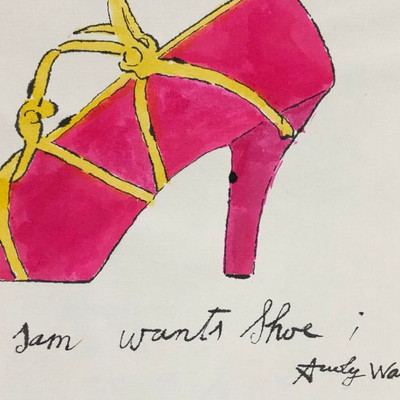 sam wants Shoe ;
Andy Wa